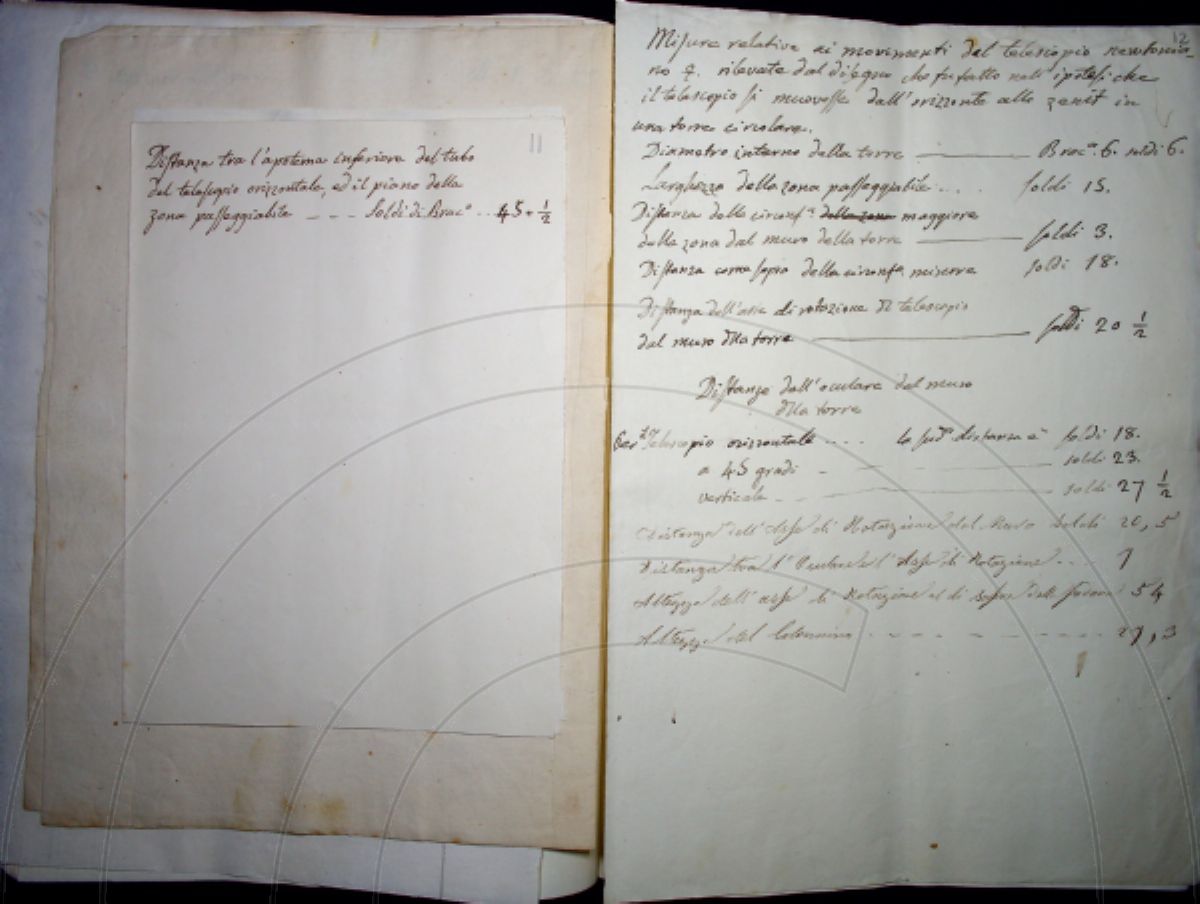 11
Distanza tra l'apotema inferiore del tubo
del telescopio orizzontale, ed il piano della
zona passeggiabile - - - Soldi di Bracº .. 45 + 1/2
12
Misure relative ai movimenti del telescopio newtonia-
no rilevate dal disegno che fu fatto nell'ipotesi che
il telescopio si movesse dall'orizzonte allo zenit in
una torre circolare.
Diametro interno della torre — Bracª 6. soldi 6.
Larghezza della zona passeggiabile . . . soldi 15.
Distanza della circonfª della zona maggiore
della zona dal muro della torre — soldi 3.
Distanza come sopra della circonfª minore soldi 18.
Distanza dell'asse di rotazione di telescopio
dal muro dlla torre — soldi 20 1/2
Distanze dell'oculare dal muro
dlla torre
Telescopio orizzontale .... la sudª distanza è soldi 18.
a 45 gradi - soldi 23.
verticale - soldi 27 1/2
Distanza dell'Asse di Rotazione dal Muro Soldi 20,5
Distanza tra l'Oculare e l'Asse di Rotazione . . . 7
Altezza dell'asse di Rotazione al di 54
Altezza del Colonnino - - - - - 27,3